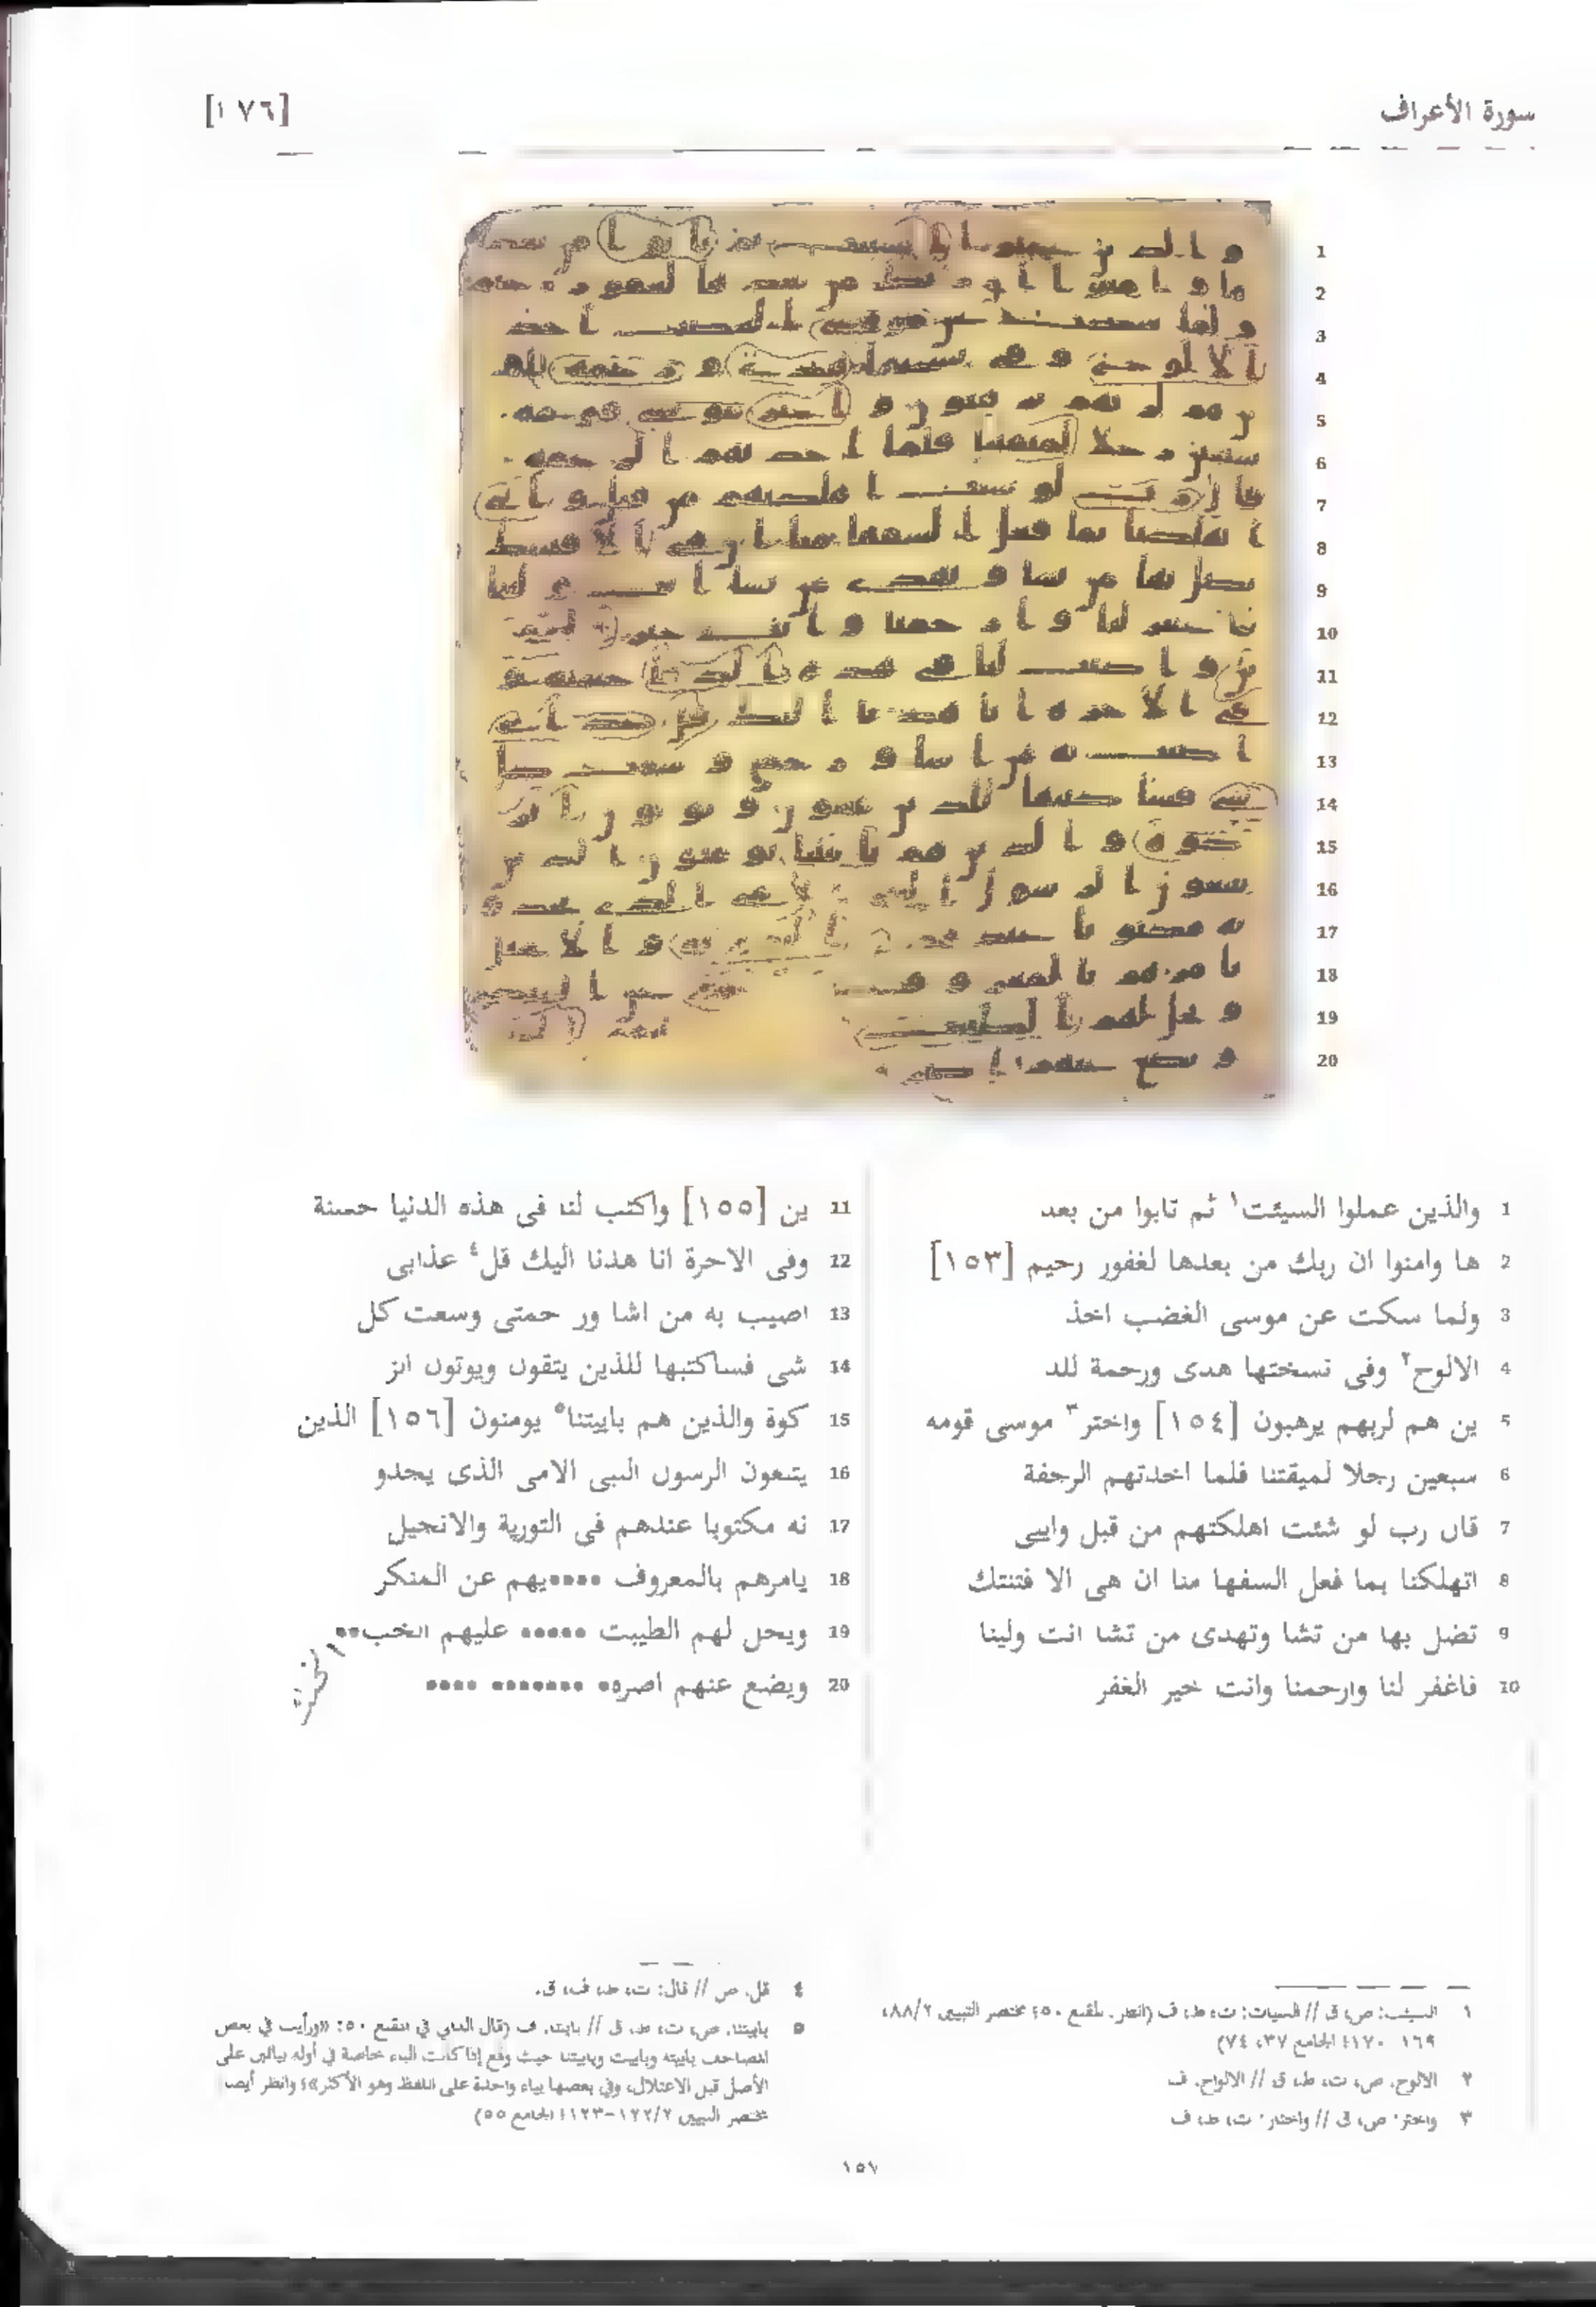 سورة الأعراف
[١٧٦]
1 والذين عملوا السيئت١ ثم تابوا من بعد
2 ها وامنوا ان ربك من بعدها لغفور رحيم [١٥٣]
3 ولما سكت عن موسى الغضب اخذ
4 الالوح٢ وفى نسختها هدى ورحمة للذ
5 ين هم لربهم يرهبون [١٥٤] واختر٣ موسى قومه
6 سبعين رجلا لميقتنا فلما اخذتهم الرجفة
7 قال رب لو شئت اهلكتهم من قبل وايى
8 اتهلكنا بما فعل السفها منا ان هى الا فتنتك
9 تضل بها من تشا وتهدى من تشا انت ولينا
10 فاغفر لنا وارحمنا وانت خير الغفر
11 ين [١٥٥] واكتب لنا فى هذه الدنيا حسنة
12 وفى الاخرة انا هدنا اليك قل٤ عذابى
13 اصيب به من اشا ور حمتى وسعت كل
14 شى فساكتبها للذين يتقون ويوتون الز
15 كوة والذين هم باييتنا٥ يومنون [١٥٦] الذين
16 يتبعون الرسول النبى الامى الذى يجدو
17 نه مكتوبا عندهم فى التورية والانجيل
18 يامرهم بالمعروف ●●●●يهم عن المنكر
19 ويحل لهم الطيبت ●●●●● عليهم الخب●●
20 ويضع عنهم اصره● ●●●●●●● ●●●●
١ السيئت: ص، ق // السيات: ت، ط، ف (انظر: المقنع ٥٠؛ مختصر التبيين ٨٨/٢،
١٦٩-١٧٠؛ الجامع ٣٧، ٧٤)
٢ الالوح: ص، ت، ط، ق // الالواح: ف
٣ واختر: ص، ق // واختار: ت، ط، ف
٤ قل: ص // قال: ت، ط، ف، ق.
٥ باييتنا: ص، ت، ط، ق // بايتنا: ف (قال الداني في المقنع ٥٠: «ورأيت في بعض
المصاحف باييته وباييت وباييتنا حيث وقع إذا كانت الباء خاصة في أوله بيائين على
الأصل قبل الاعتلال، وفي بعضها بياء واحدة على اللفظ وهو الأكثر»؛ وانظر أيضا
مختصر التبيين ١٢٢/٢-١٢٣؛ الجامع ٥٥)
١٥٧